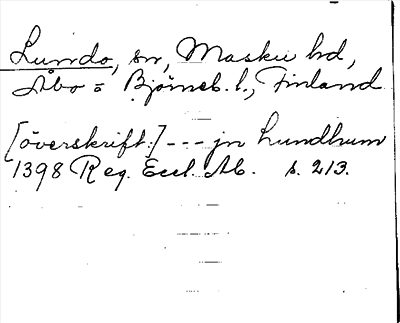 Lundo, sn, Masku hd,
Åbo o Björneb. l., Finland
[överskrift:] --- jn Lundhum
1398 Reg. Eccl. Ab. s. 213.